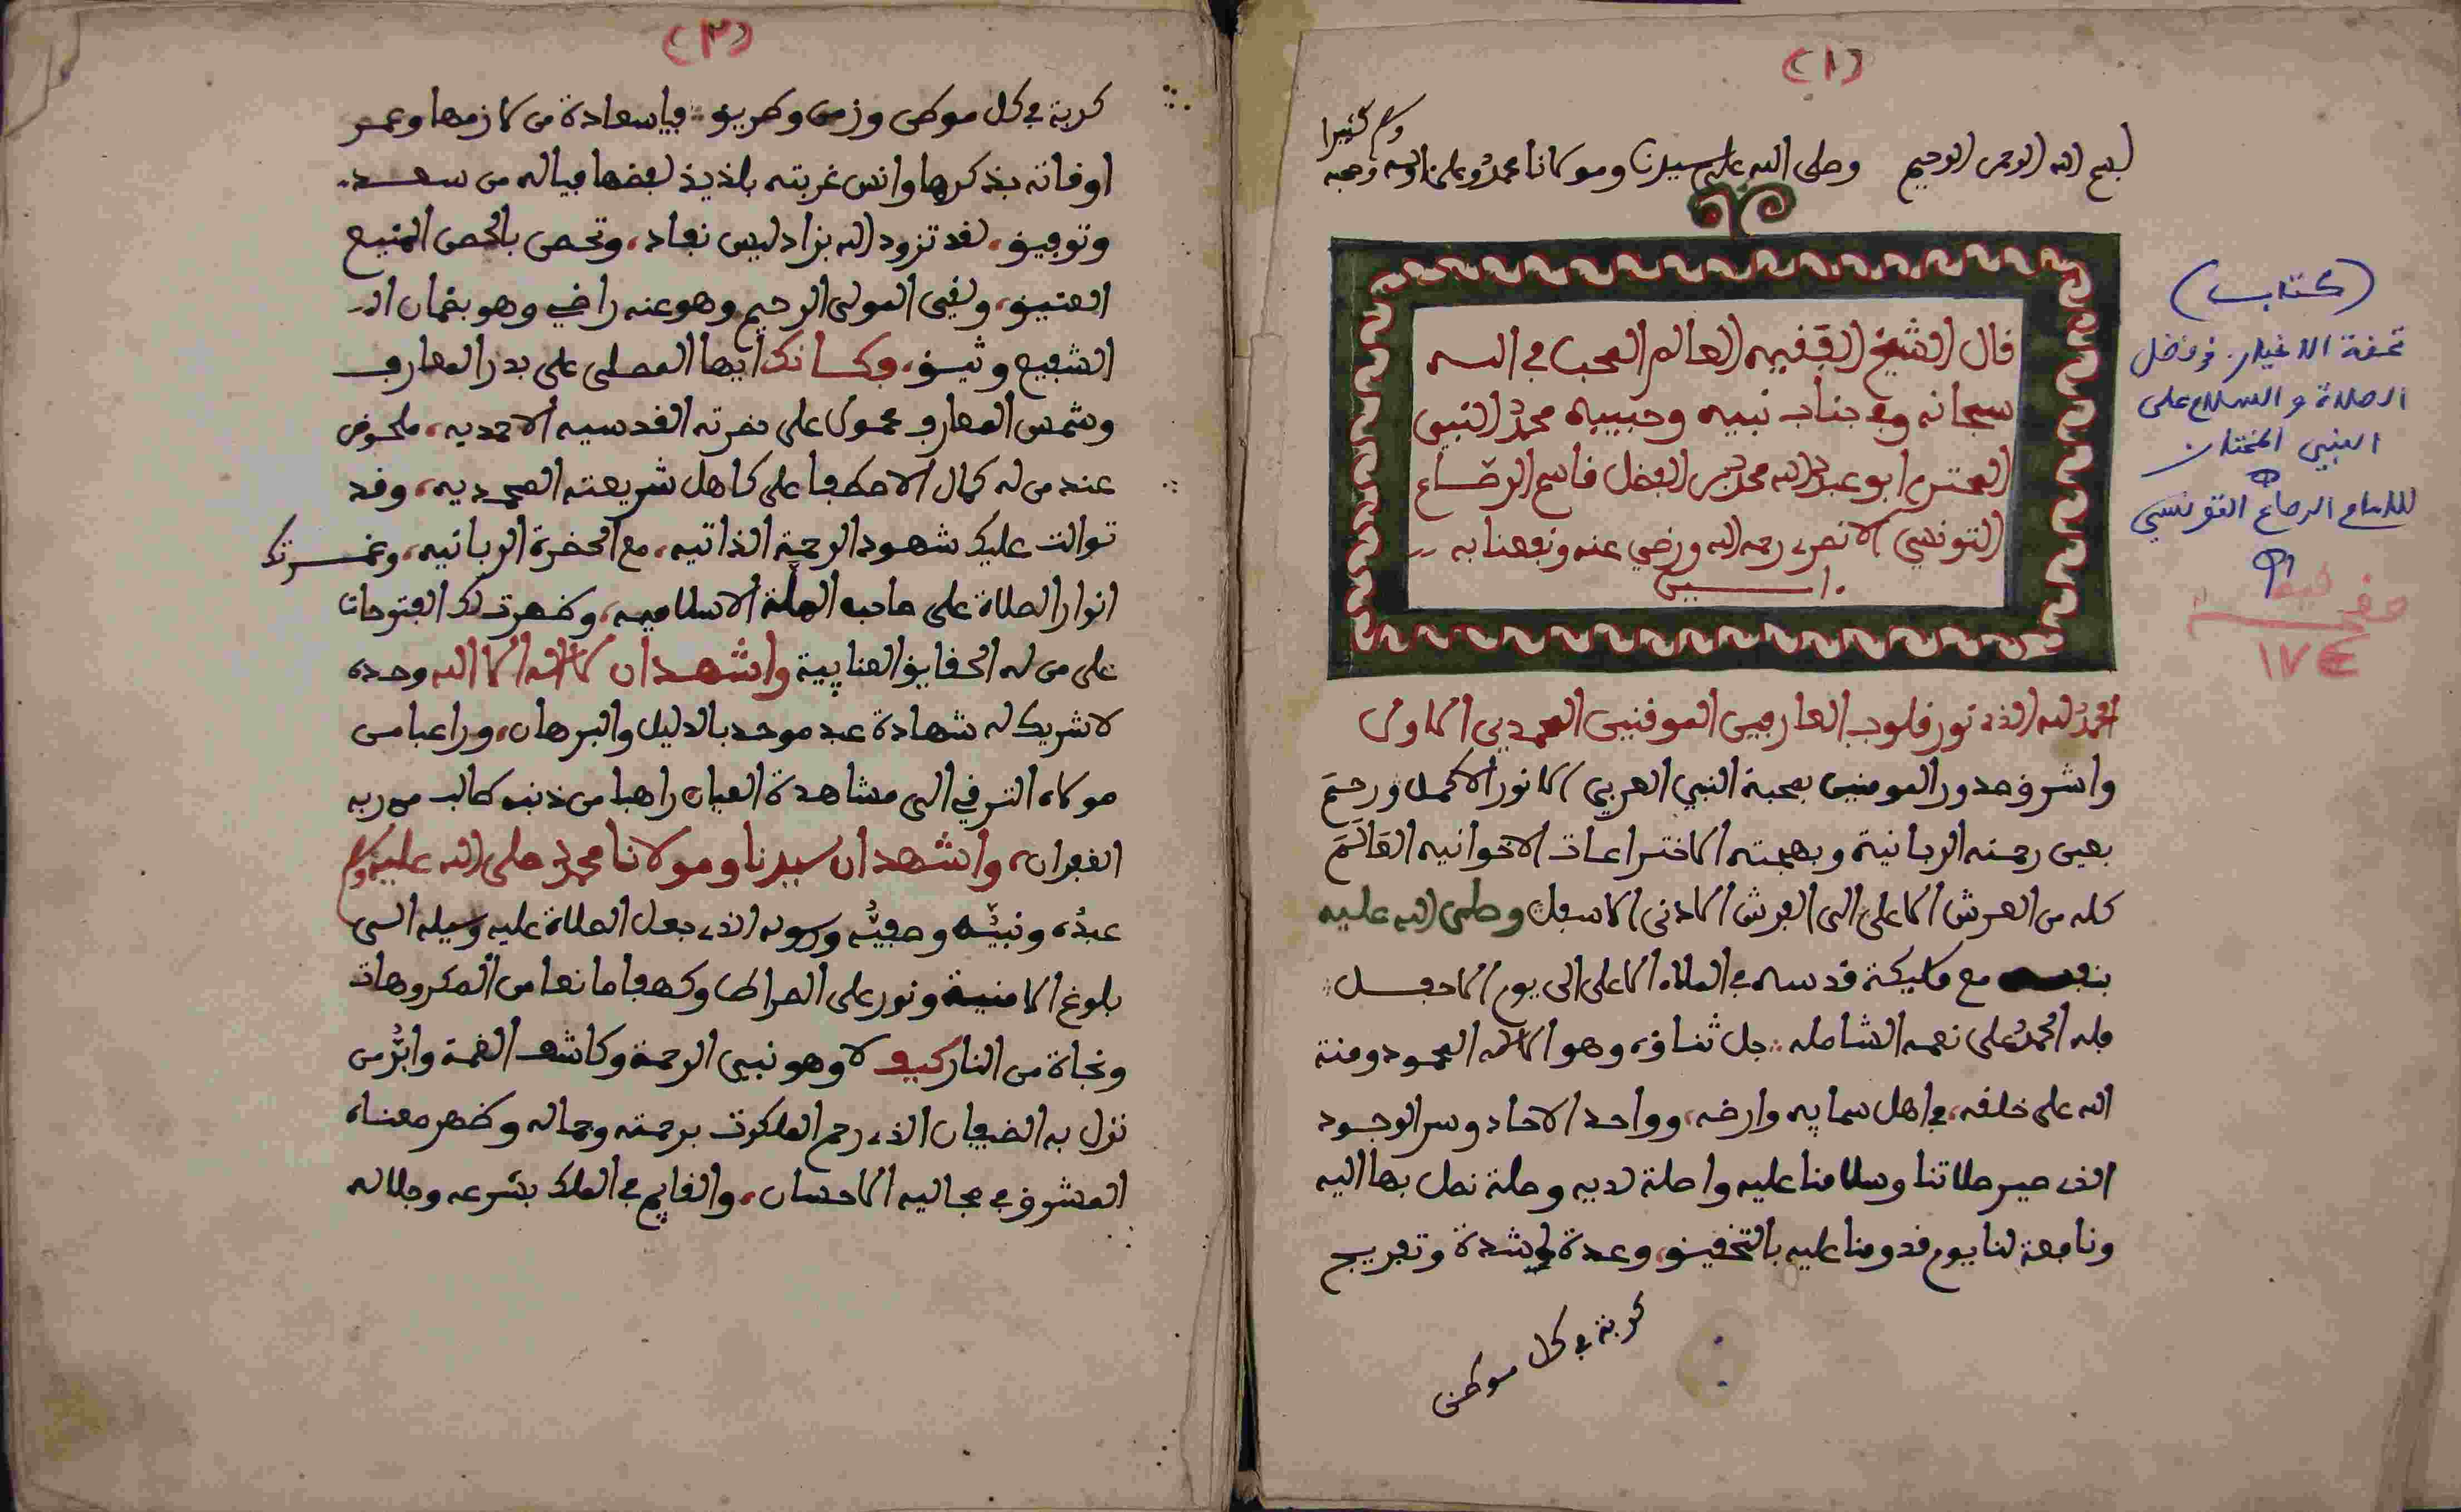 (١)
بسم الله الرحمن الرحيم وصلى الله على سيدنا ومولانا محمد وعلى اله وصحبه
وسلم كثيرا
قال الشيخ الفقيه العالم المحب في الله
سبحانه وفي جناب نبيه وحبيبه محمد النبي
ابو عبد الله محمد بن الفضل قاسم الرصاع
التونسي الانصري رحمه الله ورضي عنه ونفعنا به
امين
(كتاب)
تحفة الاخيار في فضل
الصلاة والسلام على
النبي المختار
للامام الرصاع التونسي
١٧٤
الحمد لله الذي نور قلوب العارفين الموقنين المحمديين الاول
واشرق صدور المومنين بمحبة النبي العربي الانور الاكمل ورحم
بعين رحمته الربانية وبهجته الاختراعات الاخوانيه العالم
كله من العرش الاعلى الى الفرش الادنى الاسفل وصلى الله عليه
مع مليكة قدسه في الملاء الاعلى الى يوم
فله الحمد على نعمه الشامله جل ثناؤه وهو الاله المحمود ومنة
الله على خلقه، في اهل سمايه وارضه، وواحد الاحاد وسر الوجود
الذي صير صلاتنا وسلامنا عليه واصلة لديه وصلة نصل بها اليه
ونافعة لنا يوم قدومنا عليه بالتحقيق، وعدة لشدة وتفريج
كربة في كل موطن
(٢)
كربة في كل موطن وزمن وطريق فياسعادة من لازمها وعمر
اوقاته بذكرها وانس غربته بلذيذ لفظها فياله من سعد
وتوفيق، لقد تزود لله بزاد ليس نفاد، وتحصن بالحصن المنيع
العتيق، ولقي المولى الرحيم وهو عنه راضي وهو بضمان
الشفيع وثيق، وكانك ايها المصلي على بدر المعارف
وشمس المعارف محمول على حضرته القدسيه الاحمديه، ملحوظ
عند من له كمال الاصطفا على كاهل شريعته المحمديه، وقد
توالت عليك شهود الرحمة الذاتيه، مع الحضرة الربانيه، وغمرتك
انوار الصلاة على صاحب الملة الاسلاميه، وظهرت لك الفتوحات
على من له الحقايق العنايية واشهد ان لا اله الا الله وحده
لا شريك له شهادة عبد موحد بالدليل والبرهان، وراغبا من
مولاه الترقي الى مشاهدة العيان راهبا من ذنبه طالب من ربه
الغفران، واشهد ان سيدنا ومولانا محمد صلى الله عليه وسلم
عبده ونبيه وصفيه ورسوله الذي جعل الصلاة عليه وسيله الى
بلوغ الامنية ونور على الصراط وكهفا مانعا من المكروهات
ونجاة من النار كيف لا وهو نبي الرحمة وكاشف الغمة وابر من
نزل به الضيفان الذي رحم الملكوت برحمته وجماله وظهر معناه
المشرق في مجاليه الاحسان، والقايم في الملك بشرعه وجلاله